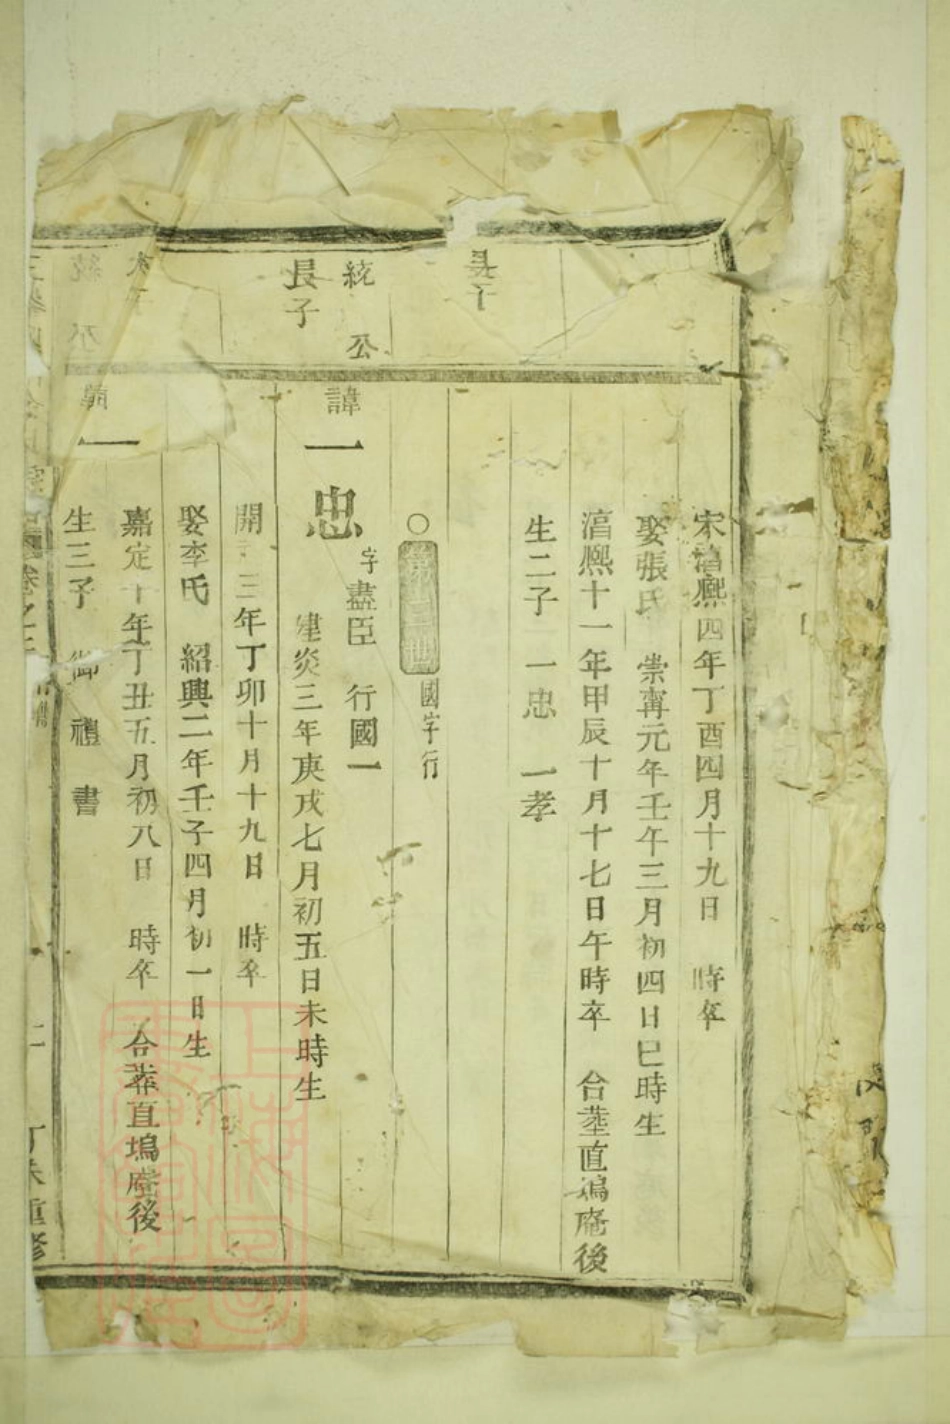 長子
宋湻熈四年丁酉四月十九日 時卒
娶張氏 崇寗元年壬午三月初四日巳時生
湻熈十一年甲辰十月十七日午時卒 合塟直塢庵後
生二子 一忠 一孝
○第三世 國字行
統公
長子
諱一忠 字盡臣 行國一
建炎三年庚戌七月初五日未時生
開 三年丁卯十月十九日 時卒
娶李氏 紹興二年壬子四月初一日生
嘉定十年丁丑五月初八日 時卒 合塟直塢庵後
生三子 御 禮 書
統公
諱一
卷之三
丁未重修